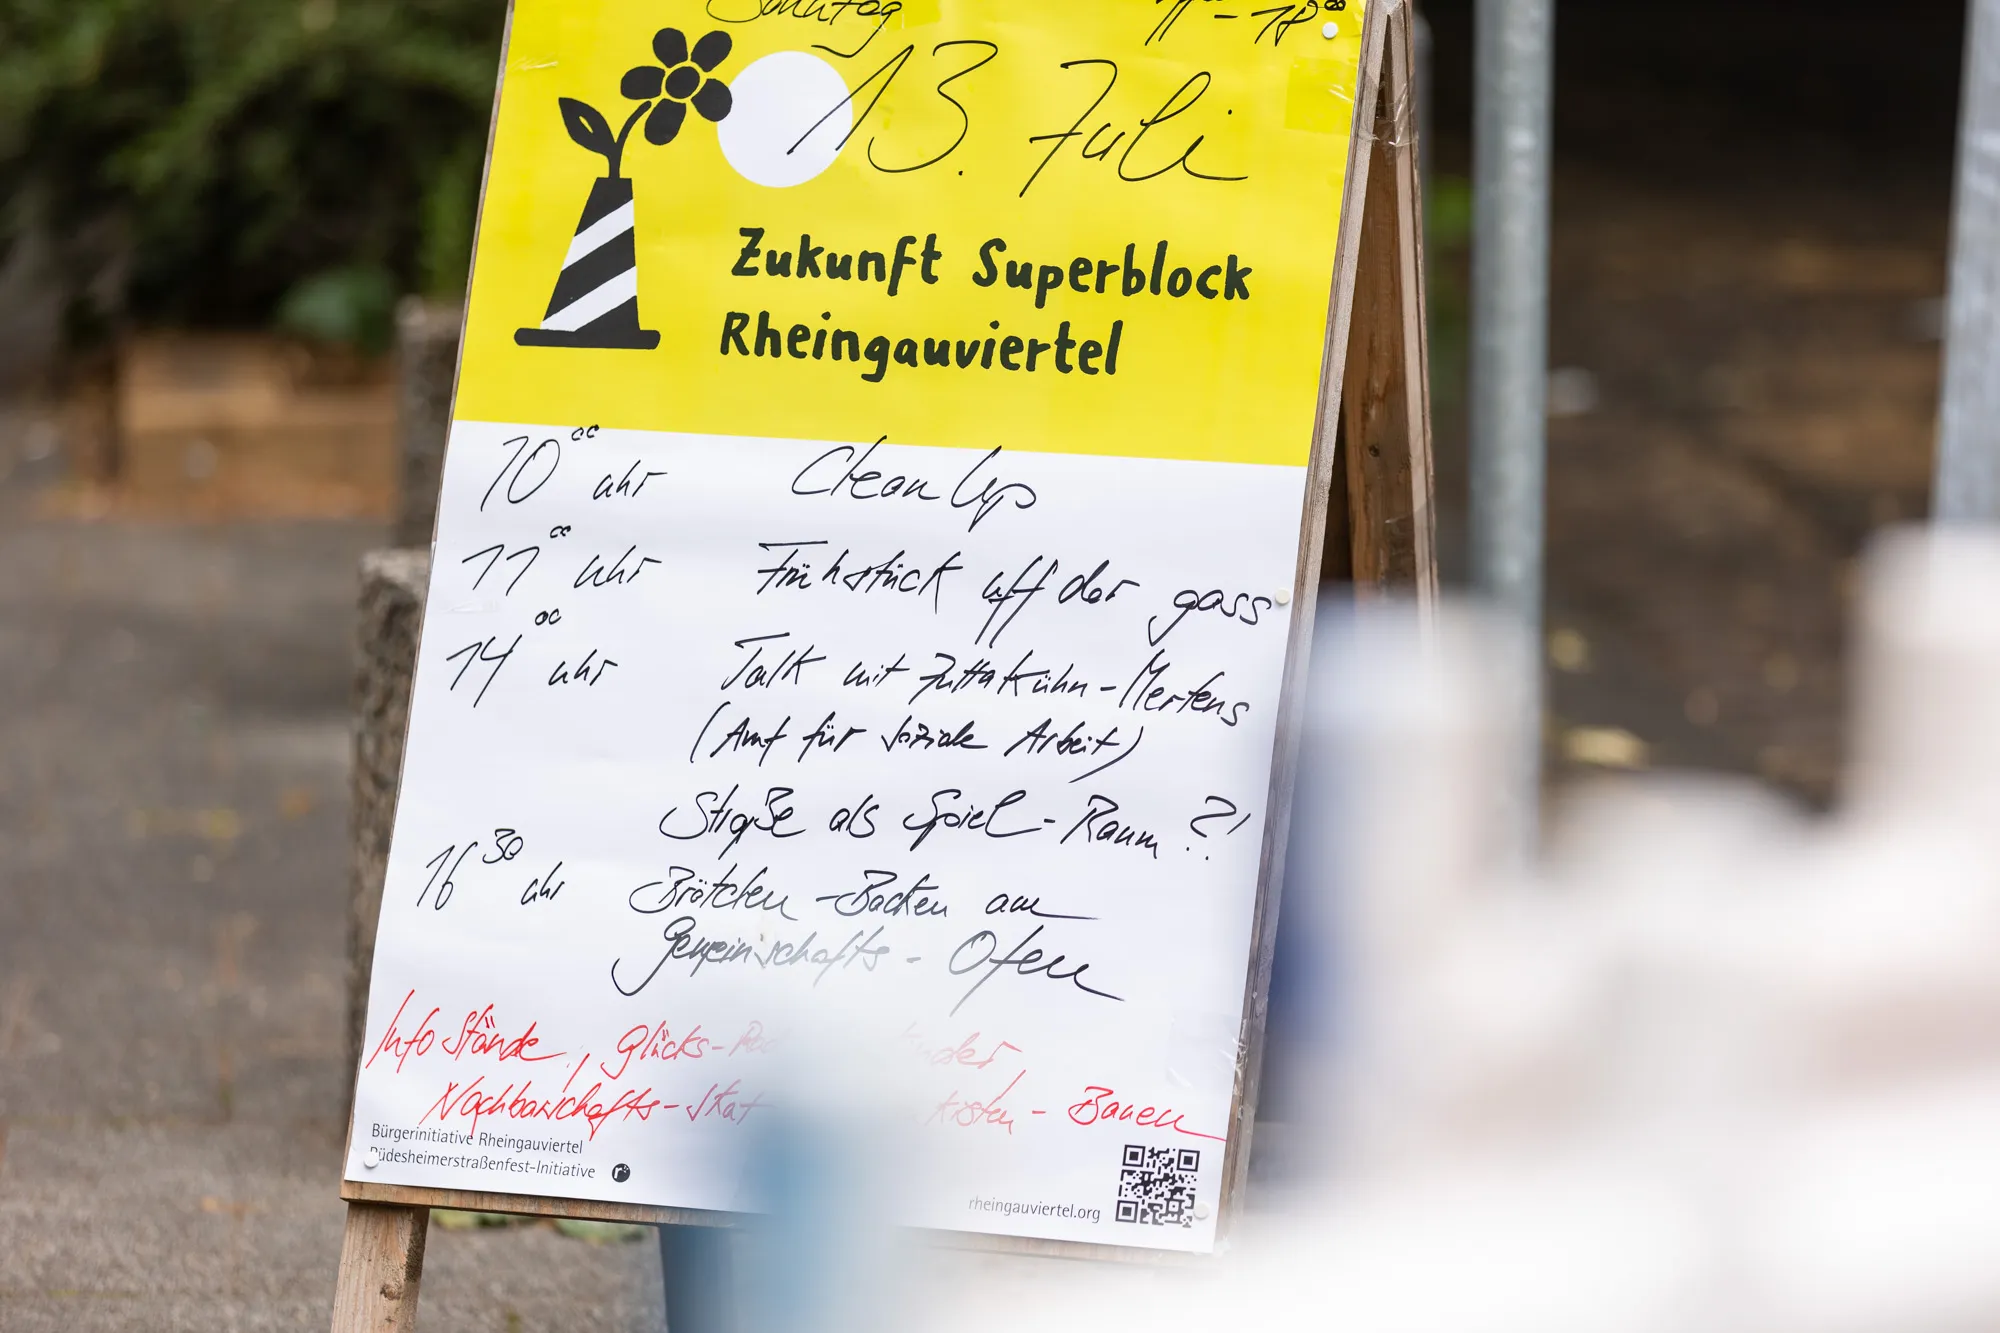 Sonntag 11⁰⁰ - 18⁰⁰
13. Juli
Zukunft Superblock
Rheingauviertel
10⁰⁰ uhr Clean Up
11⁰⁰ uhr Frühstück uff der gass
14⁰⁰ uhr Talk mit Jutta Kühn-Mertens
(Amt für soziale Arbeit)
Straße als Spiel-Raum?!
16³⁰ uhr Brötchen-Backen am
Gemeinschafts-Ofen
Info Stände, Glücks-
Nachbarschafts-Skat kisten-Bauen
Bürgerinitiative Rheingauviertel
Rüdesheimerstraßenfest-Initiative
rheingauviertel.org